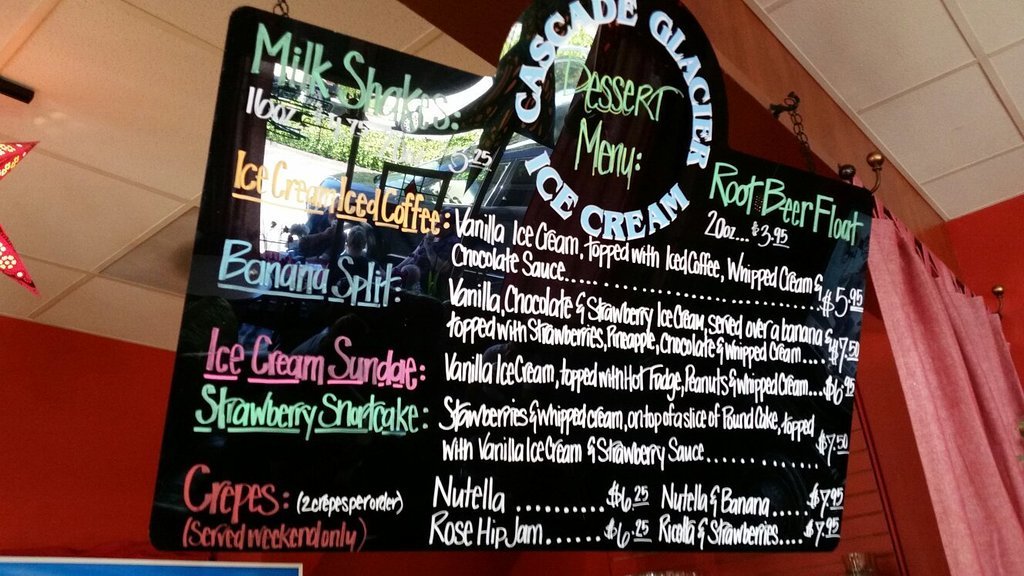 CASCADE GLACIER
ICE CREAM
Dessert
Menu:
Milk Shakes:
16oz
5.25
Root Beer Float
20oz... $3.95
Ice Cream Iced Coffee: Vanilla Ice Cream, topped with Iced Coffee, Whipped Cream &
Chocolate Sauce........ $5.95
Banana Split: Vanilla, Chocolate & Strawberry Ice Cream, served over a banana &
topped with Strawberries, Pineapple, Chocolate & Whipped Cream.... $7.50
Ice Cream Sundae: Vanilla Ice Cream, topped with Hot Fudge, Peanuts & whipped Cream... $6.95
Strawberry Shortcake: Strawberries & whipped cream, on top of a slice of Pound Cake, topped
with Vanilla Ice Cream & Strawberry Sauce............ $7.50
Crepes: (2 crepes per order) Nutella ......... $6.25 Nutella & Banana ..... $7.95
(Served weekend only) Rose Hip Jam...... $6.25 Ricotta & Strawberries.... $7.95